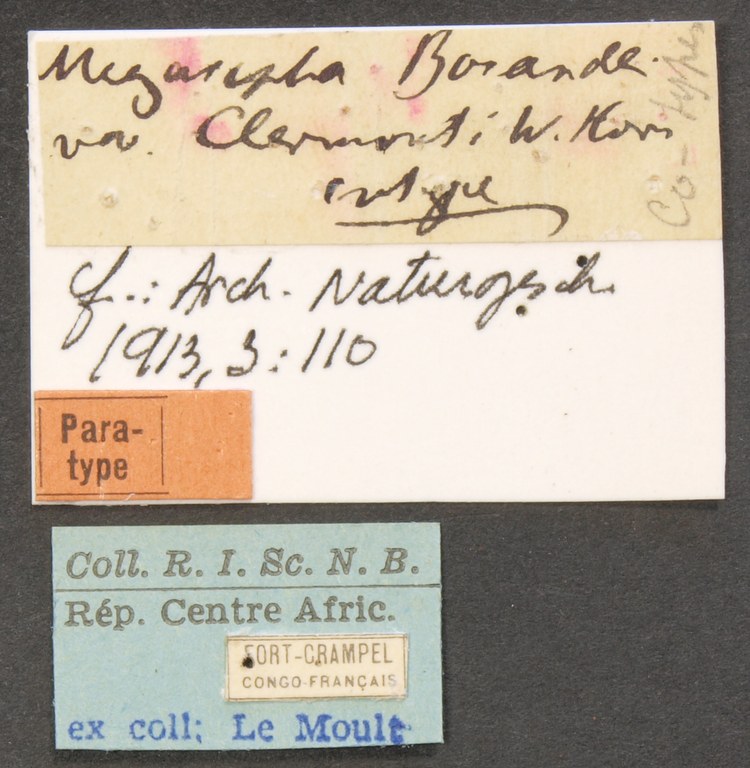 Megacephala Bocandei
var. Clermonti W. Horn
cotype
Co-type
cf.: Arch. Naturgesch.
1913, 3: 110
Para-
type
Coll. R. I. Sc. N. B.
Rép. Centre Afric.
FORT-CRAMPEL
CONGO-FRANÇAIS
ex coll; Le Moult